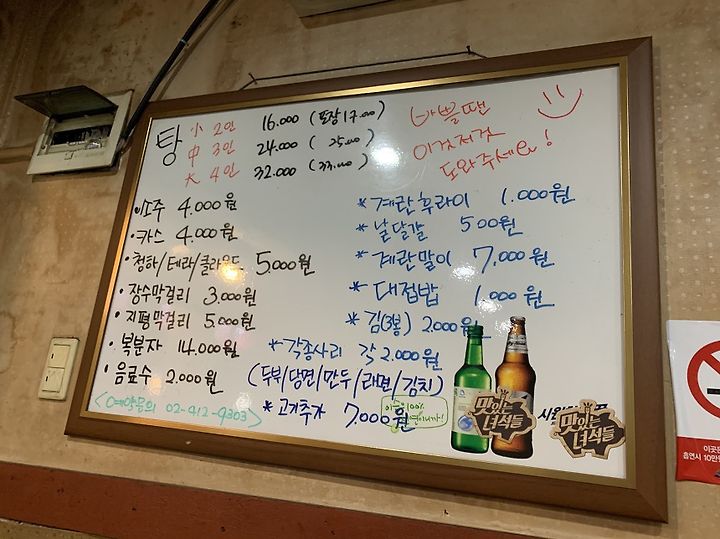 탕 小 2인 16.000 (포장 17.000)
中 3인 24.000 (25.000)
大 4인 32.000 (33.000)
바쁠땐
이것저것
도와주세요!
• 소주 4.000원
• 카스 4.000원
• 청하/테라/클라우드 5.000원
• 장수막걸리 3.000원
• 지평막걸리 5.000원
• 복분자 14.000원
• 음료수 2.000원
<예약문의 02-412-9303>
* 계란후라이 1.000원
* 날달걀 500원
* 계란말이 7,000원
* 대접밥 1.000원
* 김(3봉) 2.000원
* 각종사리 각 2.000원
(두부/당면/만두/라면/김치)
* 고기추가 7.000원
맛있는
녀석들
맛있는
녀석들
이곳
흡연시 10만